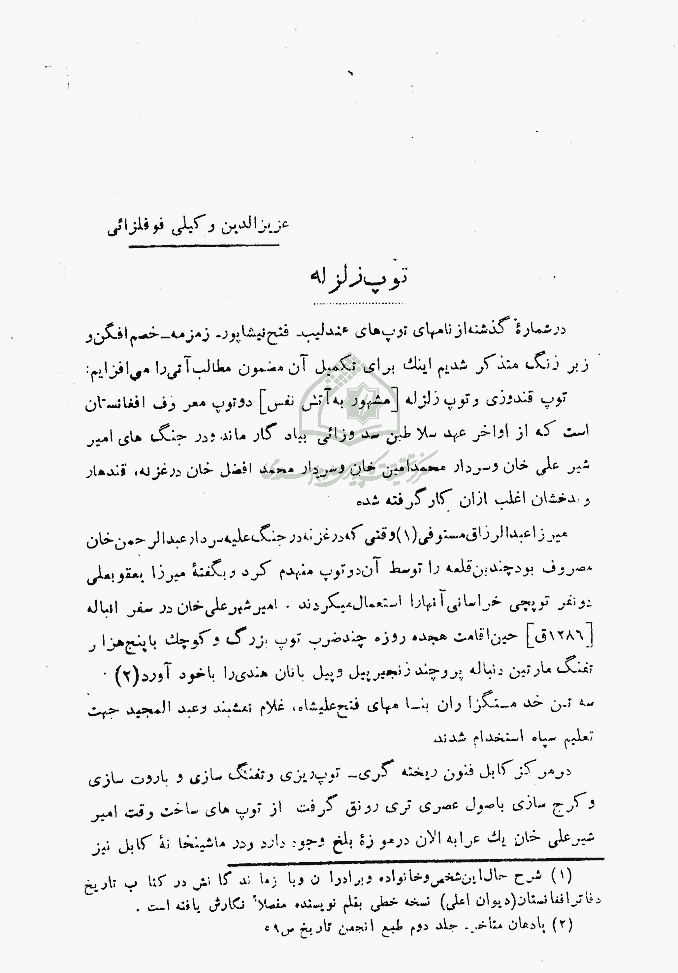 عزیزالدین وکیلی فوفلزائی
توپ زلزله
در شمارهٔ گذشته از نامهای توپ‌های عندلیب- فتح نیشاپور- زمزمه- خصم افگن و
زبر زنگ متذکر شدیم اینک برای تکمیل آن مضمون مطالب آتی را می افزایم:
توپ قندوزی و توپ زلزله [مشهور به آتش نفس] دو توپ معروف افغانستان
است که از اواخر عهد سلاطین سدوزائی بیادگار مانده و در جنگ های امیر
شیر علی خان و سردار محمد امین خان و سردار محمد افضل خان در غزنه، قندهار
و بدخشان اغلب از آن کار گرفته شده
میرزا عبدالرزاق مستوفی (۱) وقتی که در غزنه در جنگ علیه سردار عبدالرحمن خان
مصروف بود چندین قلعه را توسط آن دو توپ منهدم کرد و بگفتهٔ میرزا یعقوبعلی
دو نفر توپچی خراسانی آنها را استعمال میکردند . امیر شیر علی خان در سفر انباله
[۱۲۸۶ق] حین اقامت هجده روزه چند ضرب توپ بزرگ و کوچک با پنج هزار
تفنگ مارتین دنباله پر و چند زنجیر پیل و پیل بانان هندی را با خود آورد (۲) .
سه تن خدمتگزاران بنامهای فتح علیشاه، غلام نقشبند و عبدالمجید جهت
تعلیم سپاه استخدام شدند
در مرکز کابل فنون ریخته گری- توپ ریزی و تفنگ سازی و باروت سازی
و کرچ سازی باصول عصری تری رونق گرفت از توپ های ساخت وقت امیر
شیر علی خان یک عرابه الان در موزهٔ بلخ وجود دارد و در ماشینخانهٔ کابل نیز
(۱) شرح حال این شخص و خانواده و برادران و بازماندگانش در کتاب تاریخ
دفاتر افغانستان (دیوان اعلی) نسخه خطی بقلم نویسنده مفصلاً نگارش یافته است .
(۲) پادشاهان متأخر- جلد دوم طبع انجمن تاریخ ص ۵۹